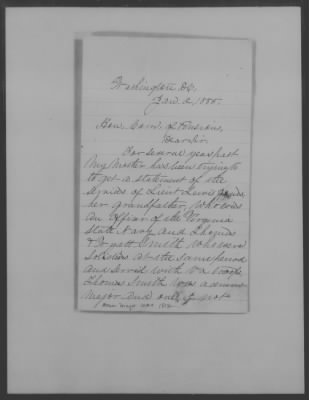 Washington D.C.
Jan. 2, 1885.
Hon. Com. of Pensions,
Dear Sir:
For several years past
My Mother has been trying
to get a statement of the
of Lieut Lewis
her grandfather, who was
an Officer of the Virginia
State Navy and Thomas
Smith who were
Soldiers at the same period
and served with Va troops
Thomas Smith was
Major and one if not